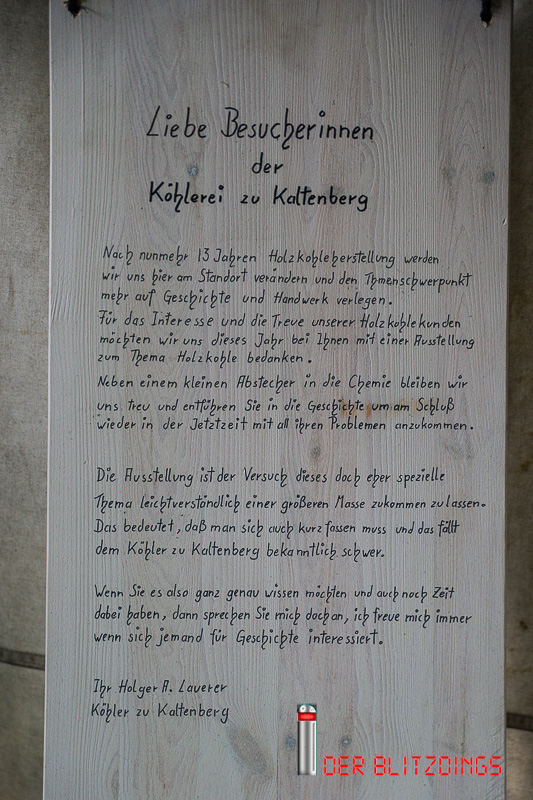 Liebe Besucherinnen
der
Köhlerei zu Kaltenberg
Nach nunmehr 13 Jahren Holzkohleherstellung werden
wir uns hier am Standort verändern und den Thmenschwerpunkt
mehr auf Geschichte und Handwerk verlegen.
Für das Interesse und die Treue unserer Holzkohlekunden
möchten wir uns dieses Jahr bei Ihnen mit einer Ausstellung
zum Thema Holzkohle bedanken.
Neben einem kleinen Abstecher in die Chemie bleiben wir
uns treu und entführen Sie in die Geschichte um am Schluß
wieder in der Jetztzeit mit all ihren Problemen anzukommen.
Die Ausstellung ist der Versuch dieses doch eher spezielle
Thema leichtverständlich einer größeren Masse zukommen zu lassen.
Das bedeutet, daß man sich auch kurz fassen muss und das fällt
dem Köhler zu Kaltenberg bekanntlich schwer.
Wenn Sie es also ganz genau wissen möchten und auch noch Zeit
dabei haben, dann sprechen Sie mich doch an, ich freue mich immer
wenn sich jemand für Geschichte interessiert.
Ihr Holger A. Lauerer
Köhler zu Kaltenberg
DER BLITZDINGS